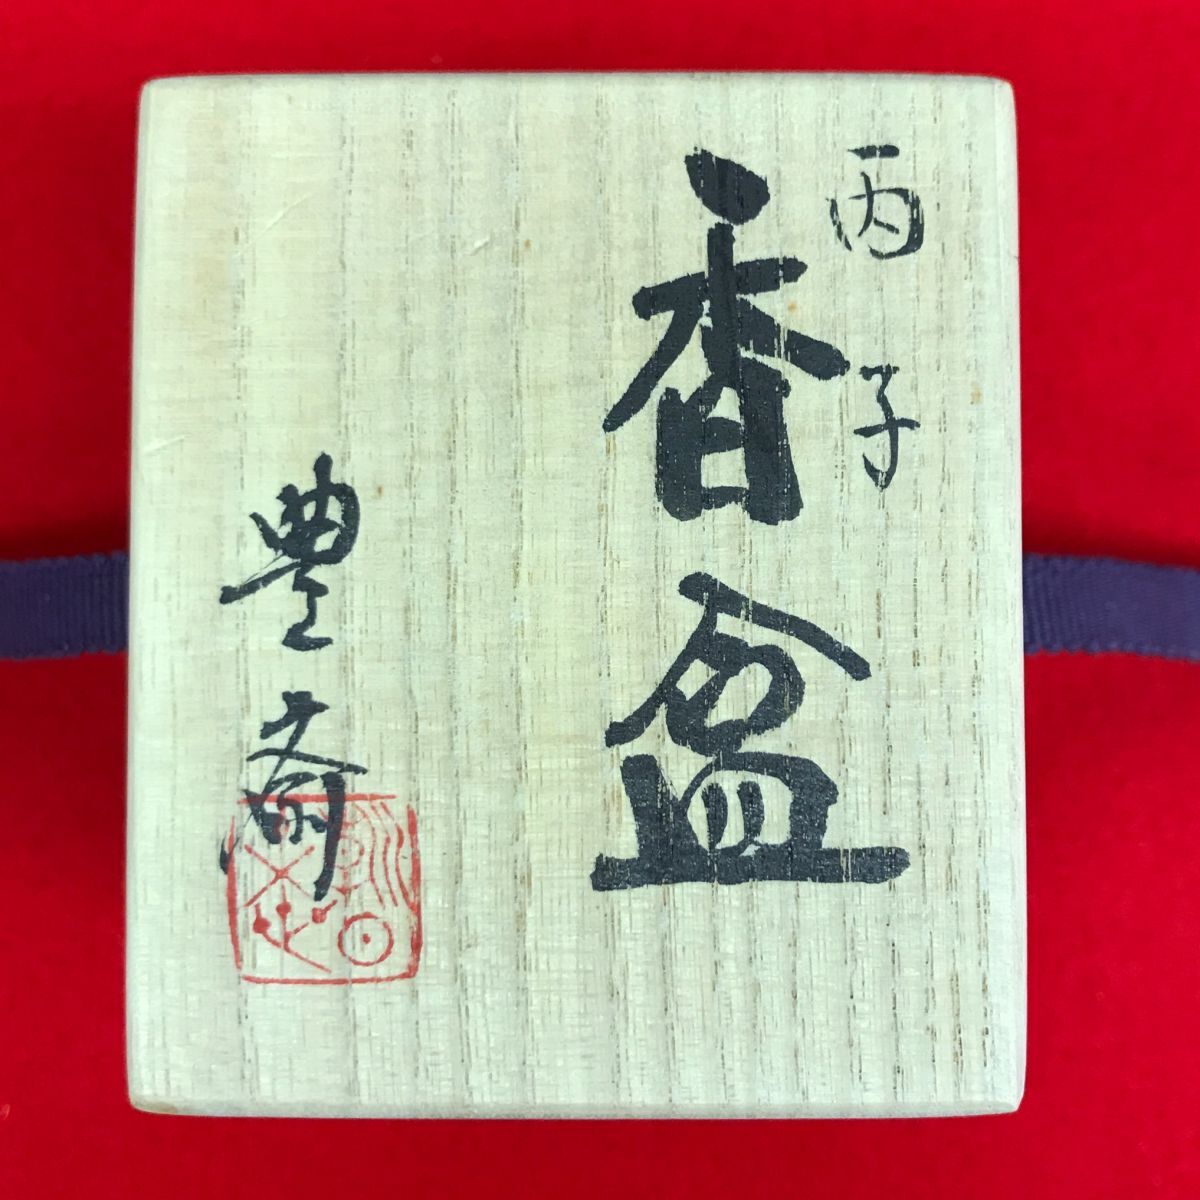 丙子
香盒
豊斎